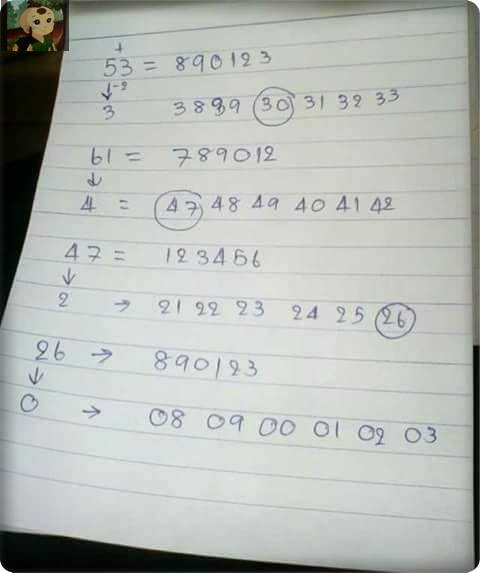 +
53 = 890123
↓-2
3 38 39 30 31 32 33
61 = 789012
↓
4 = 47 48 49 40 41 42
47 = 123456
↓
2 → 21 22 23 24 25 26
26 → 890123
↓
0 → 08 09 00 01 02 03